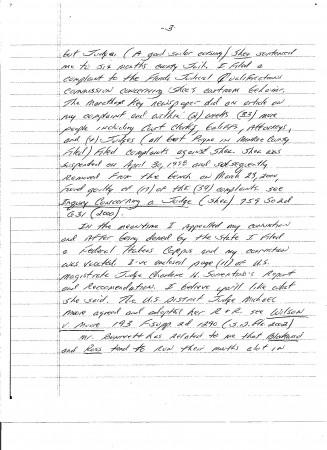 -3
but Judge (A good sailor cursing) Shea sentenced
me to six months county Jail. I Filed a
complaint to the Florida Judicial Qualifications
commission concerning Shea's courtroom behavior.
The Marathon Key newspaper did an article on
my complaint and within (2) weeks (33) more
people including Court Clerks, Bailiffs, Attorneys,
and (4) Judges (all but Payne in Monroe County
Filed) Filed complaints against Shea. Shea was
suspended on April 30, and subsequently
removed From the bench on March 23, 2000,
found guilty of (17) of the (39) complaints. see
Inquiry Concerning a Judge (Shea) 759 So.2d
631 (2000).
In the meantime I appealled my conviction
and After being denied by the State I Filed
a Federal Habeas Corpus and my conviction
was vacated. I've enclosed page (11) of U.S.
Magistrate Judge Charlene H. Sorrentino's Report
and Recomendation. I believe you'll like what
she said. The U.S. District Judge Michael
Moore agreed and adopted her R & R. see Wilson
v. Moore 193 F.supp 2d 1290 (S.D. Fla 2002)
Mr. has related to me that
and Ross tend to run their mouths alot in